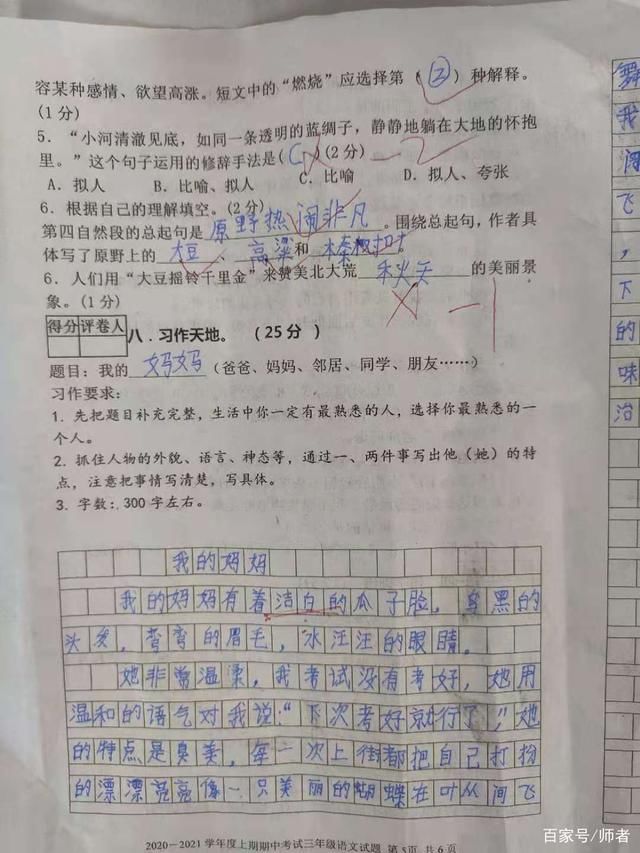 容某种感情、欲望高涨。短文中的“燃烧”应选择第（ ② ）种解释。
(1 分)
5．“小河清澈见底，如同一条透明的蓝绸子，静静地躺在大地的怀抱
里。”这个句子运用的修辞手法是( C )(2 分) －2
A．拟人 B．比喻、拟人 C．比喻 D．拟人、夸张
6．根据自己的理解填空。(2 分)
第四自然段的总起句是 原野热闹非凡 。围绕总起句，作者具
体写了原野上的 大豆 、 高粱 和 。
6．人们用“大豆摇铃千里金”来赞美北大荒 秋天 的美丽景
象。(1 分) －1
得分 评卷人
八．习作天地。 （25 分 ）
题目：我的 妈妈 （爸爸、妈妈、邻居、同学、朋友……）
习作要求：
1．先把题目补充完整，生活中你一定有最熟悉的人，选择你最熟悉的一
个人。
2．抓住人物的外貌、语言、神态等，通过一、两件事写出他（她）的特
点，注意把事情写清楚，写具体。
3．字数：300 字左右。
我的妈妈
我的妈妈有着洁白的瓜子脸，乌黑的
头发，弯弯的眉毛，水汪汪的眼睛。
她非常温柔，我考试没有考好，她用
温和的语气对我说：“下次考好就行了，”她
的特点是臭美，每一次上街都把自己打扮
的漂漂亮亮像一只美丽的蝴蝶在叶丛间飞
2020－2021 学年度上期期中考试三年级语文试题 第 5 页 共 6 页
舞
我
阔
飞
，
下
的
味
治
百家号/师者